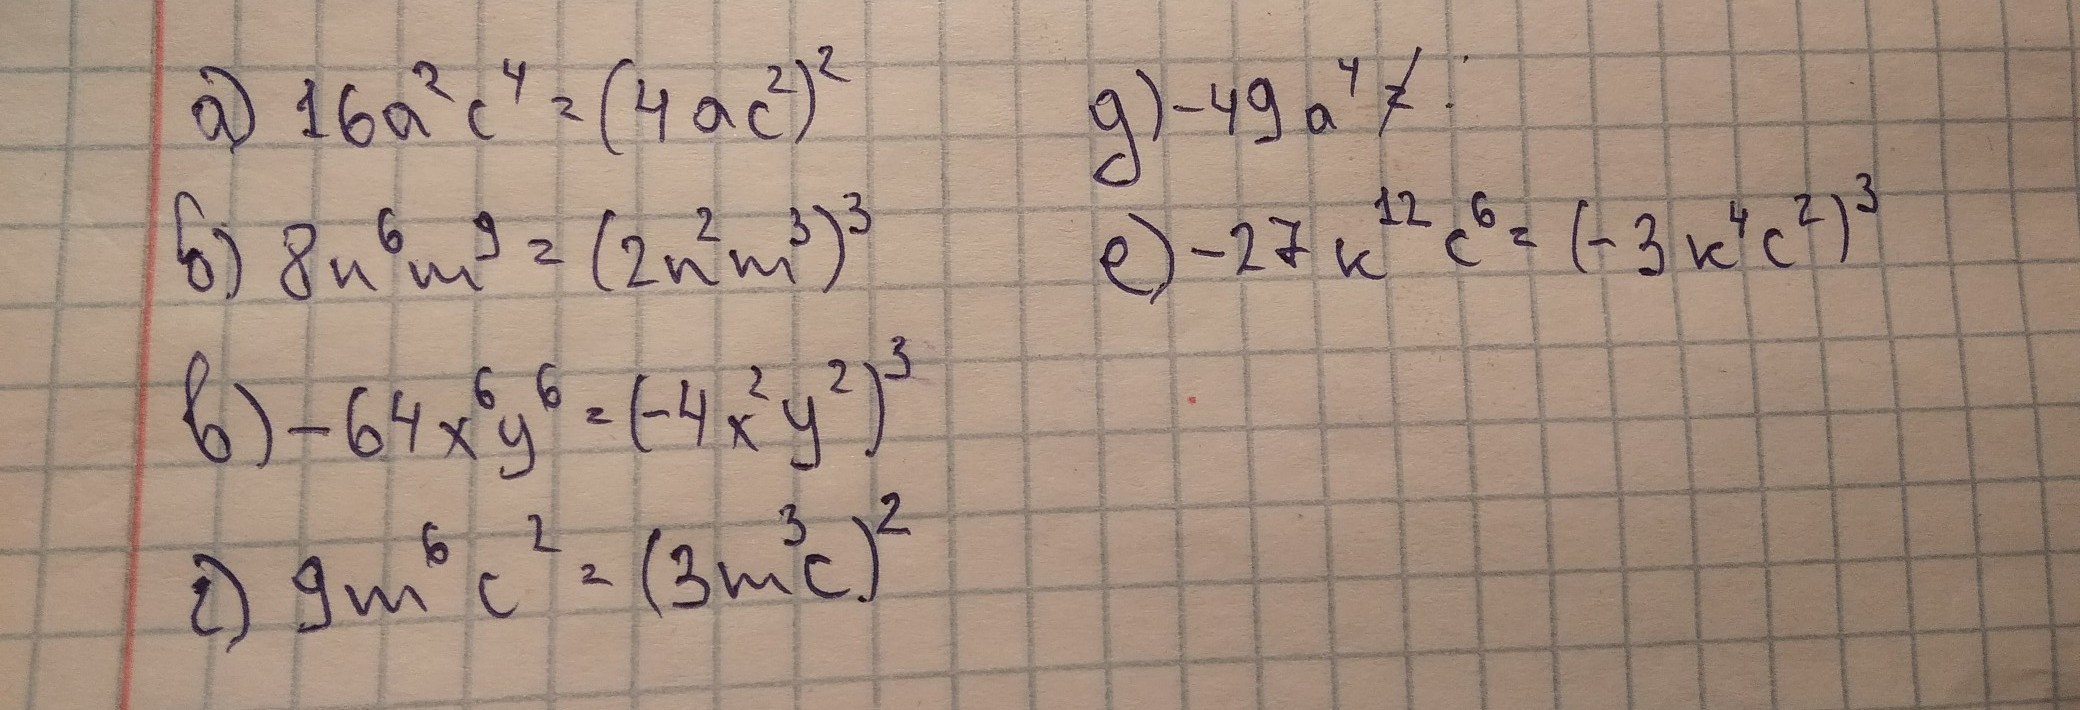 а) 16a²c⁴ = (4ac²)²
б) 8n⁶m⁹ = (2n²m³)³
в) -64x⁶y⁶ = (-4x²y²)³
г) 9m⁶c² = (3m³c)²
д) -49a⁴ ≠
е) -27к¹²c⁶ = (-3к⁴c²)³